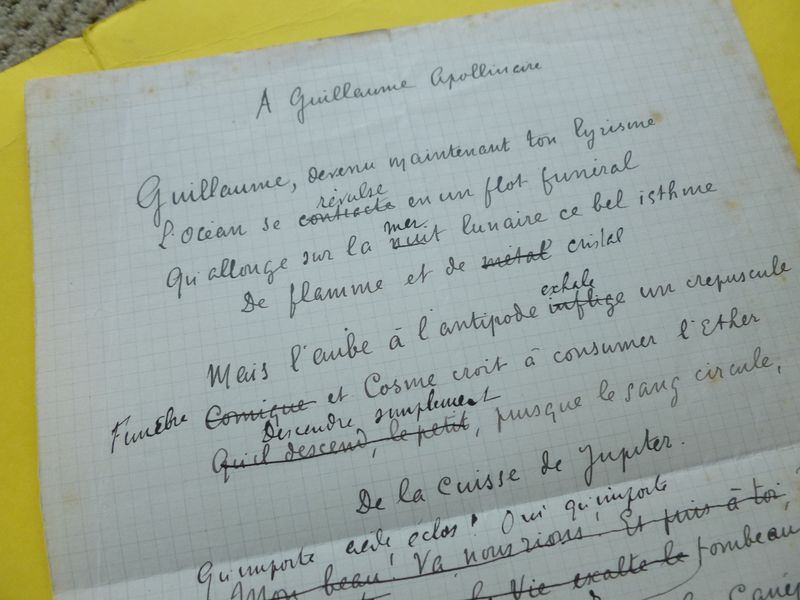 A Guillaume Apollinaire
Guillaume, devenu maintenant ton lyrisme
révulse
L'océan se contracte en un flot funéral
mer
Qu'allonge sur la nuit lunaire ce bel isthme
De flamme et de métal cristal
exhale
Mais l'aube à l'antipode inflige un crepuscule
Funèbre Comique et Cosme croit à consumer l'Ether
Descendre simplement
Qu'il descend, le petit, puisque le sang circule,
De la Cuisse de Jupiter.
Qu'importe éclos! Oui qu'importe
Mon beau! Va nous rions! Et puis à toi
la Vie exalte le tombeau